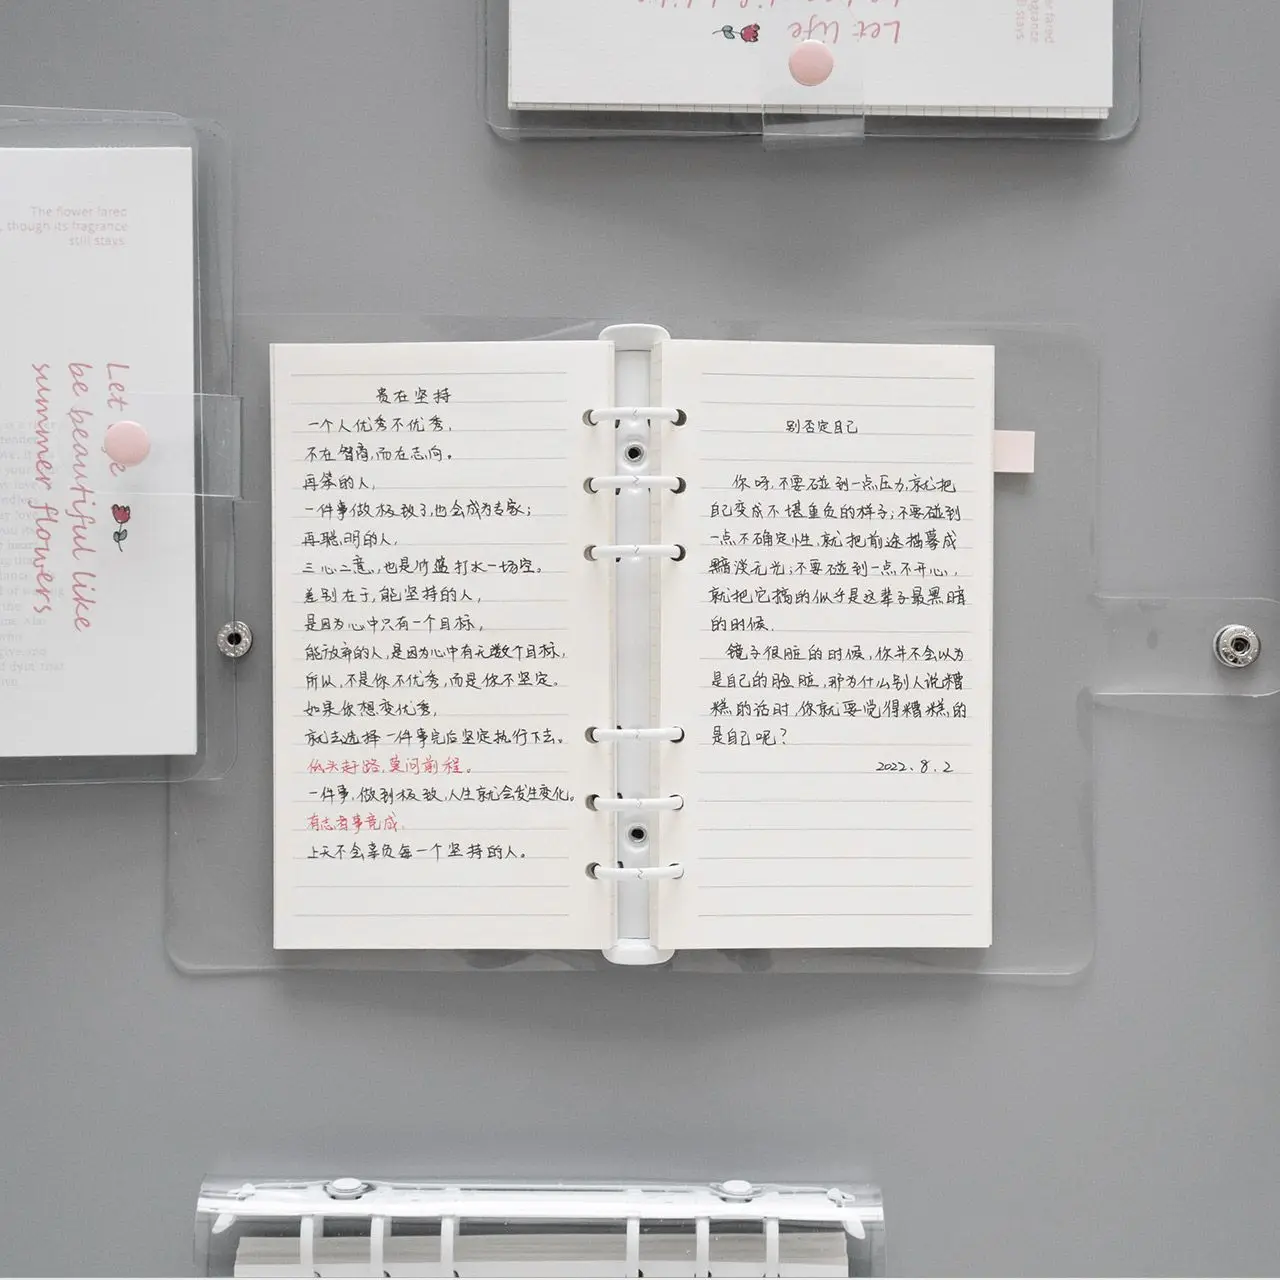 Let life
The flower fared
, though its fragrance
still stays.
Let life
be beautiful like
summer flowers
贵在坚持
一个人优秀不优秀,
不在智商,而在志向。
再笨的人,
一件事做极致了,也会成为专家;
再聪明的人,
三心二意,也是竹篮打水一场空。
差别在于,能坚持的人,
是因为心中只有一个目标,
能放弃的人,是因为心中有无数个目标,
所以,不是你不优秀,而是你不坚定。
如果你想变优秀,
就去选择一件事完后坚定执行下去。
低头赶路,莫问前程。
一件事,做到极致,人生就会发生变化。
有志者事竟成.
上天不会辜负每一个坚持的人。
别否定自己
你呀,不要碰到一点压力,就把
自己变成不堪重负的样子;不要碰到
一点不确定性,就把前途描摹成
黯淡无光;不要碰到一点不开心,
就把它搞的似乎是这辈子最黑暗
的时候.
镜子很脏的时候,你并不会以为
是自己的脸脏,那为什么别人说糟
糕的话时,你就要觉得糟糕的
是自己呢?
2022.8.2